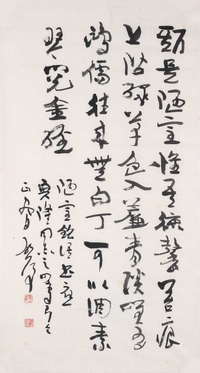 是陋室惟吾德馨苔痕
上階綠草色入簾青談笑有
鴻儒往來無白丁可以調素
琴閱金經
陋室銘語
同志之
正